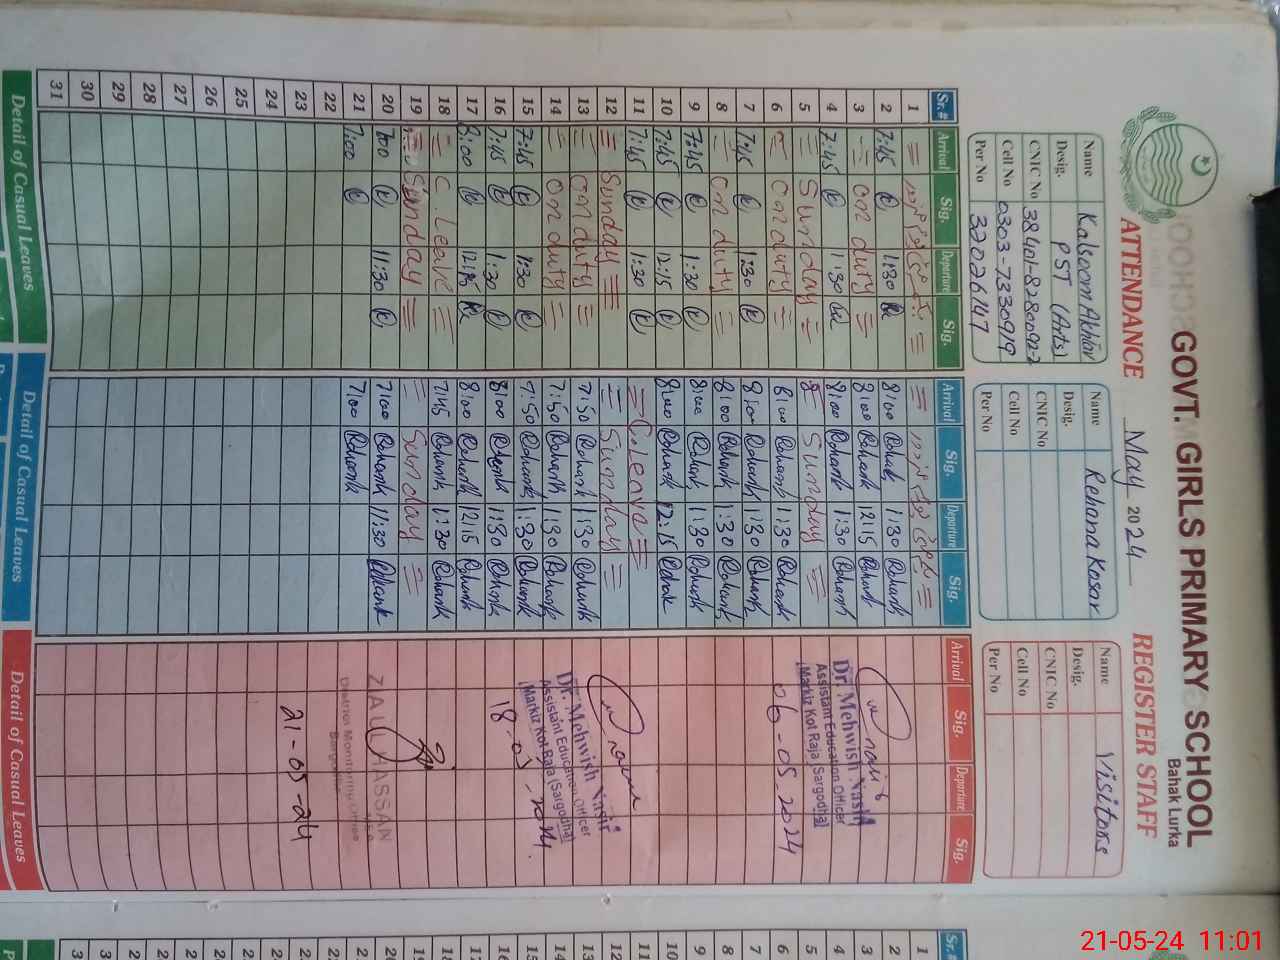 GOVT. GIRLS PRIMARY SCHOOL
Bahak Lurka
ATTENDANCE May 2024 REGISTER STAFF
Name Kalsoom Akhtar
Desig. PST (Arts)
CNIC No 38401-8280092-2
Cell No 0303-7330919
Per No 32026147
Name Rehana Kosar
Desig.
CNIC No
Cell No
Per No
Name Visitors
Desig.
CNIC No
Cell No
Per No
Sr.# Arrival Sig. Departure Sig. Arrival Sig. Departure Sig. Arrival Sig. Departure Sig.
1
2 7:45 1:30 8:00 1:30
3 on duty 8:00 12:15
4 7:45 1:30 8:00 1:30
5 Sunday Sunday
6 on duty 8:00 1:30
7 7:45 1:30 8:00 1:30
8 on duty 8:00 1:30
9 7:45 1:30 8:00 1:30
10 7:45 12:15 8:00 12:15
11 7:45 1:30 C.Leave
12 Sunday Sunday
13 on duty 7:50 1:30
14 on duty 7:50 1:30
15 7:45 1:30 7:50 1:30
16 7:45 1:30 8:00 1:30
17 8:00 12:15 8:00 12:15
18 C.Leave 7:45 1:30
19 Sunday Sunday
20 7:00 11:30 7:00 11:30
21 7:00 7:00
22
23
24
25
26
27
28
29
30
31
Dr. Mehwish Nasir
Assistant Education Officer
Markiz Kot Raja (Sargodha)
06-05-2024
Dr. Mehwish Nasir
Assistant Education Officer
Markiz Kot Raja (Sargodha)
18-05-2024
ZIA UL HASSAN
District Monitoring Officer
Sargodha
21-05-24
Detail of Casual Leaves Detail of Casual Leaves Detail of Casual Leaves
Sr.#
1
2
3
4
5
6
7
8
9
10
11
12
13
14
15
16
17
18
19
21-05-24 11:01